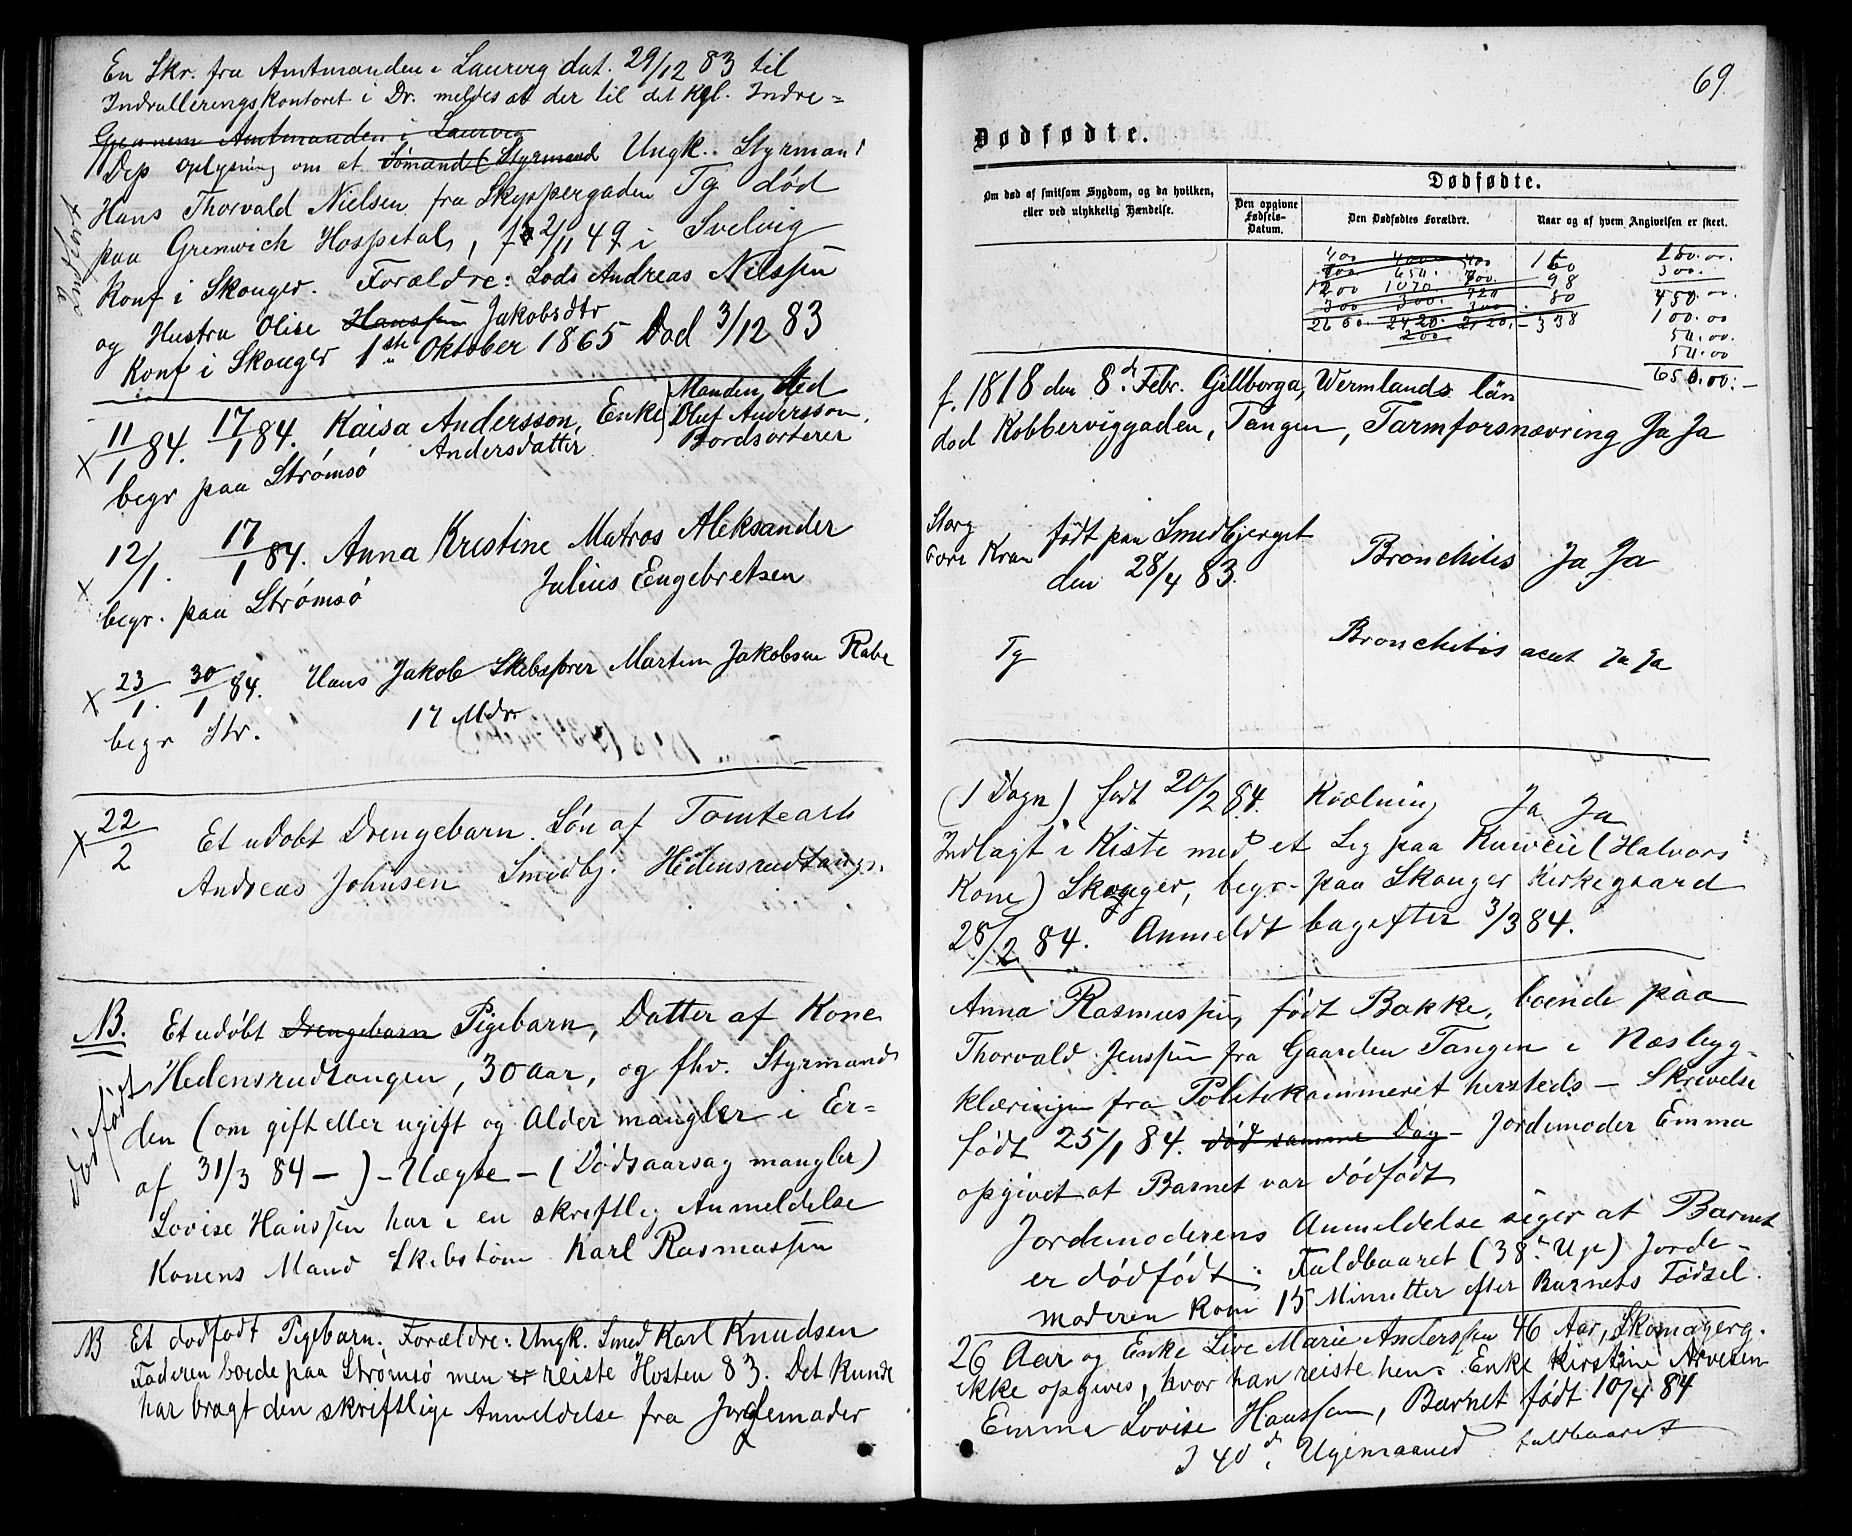 En Skr. fra Amtmanden i Laurvig dat. 29/12 83 til
Indrulleringskontoret i Dr. meldes at der til det Kgl. Indre=
Gjennem Amtmanden i Laurvig
Dep oplysning om at Sømand Styrmand Ungk. Styrmand
Hans Thorvald Nielsen fra Skyppergaden Tg død
paa Grenwich Hospetal, f. 2/11 49 i Svelvig
Konf i Skouger. Forældre: Lods Andreas Nilssen
og Hustru Olise Hanssen Jakobsdtr
Konf i Skouger 1ste Oktober 1865 Død 3/12 83
x 11/1 84. 17/1 84. Kaisa Andersson, Enke Manden død
Andersdatter Oluf Andersson,
Bordsorterer
begr paa Strømsø
x 12/1. 17/1 84. Anna Kristine Matros Aleksander
Julius Engebretsen
begr. paa Strømsø
x 23/1. 30/1 84. Hans Jakob Skibsfører Martin Jakobsen Rabe
17 Mdr
begr Str.
x 22/2 Et udøbt Drengebarn. Søn af Tomtearb
Andreas Johnsen Smedbj. Hedensrudtangn
NB. Et udøbt Drengebarn Pigebarn, Datter af Kone
Dødfødt
Hedensrudtangen, 30 aar, og fhv. Styrmand
den (om gift eller ugift og Alder mangler i Er=
af 31/3 84 — ) – Uægte – (Dødsaarsag mangler)
Lovise Hanssen har i en skriftlig Anmeldelse
Konens Mand Skibstøm Karl Rasmussen
NB Et dødfødt Pigebarn, Forældre: Ungk. Smed Karl Knudsen
Faderen boede paa Strømsø men er reiste Høsten 83. Det Kunde
har bragt den skriftlige Anmeldelse fra Jordemoder
69.
Dødfødte.
Om død af smitsom Sygdom, og da hvilken,
eller ved ulykkelig Hændelse.
Dødfødte.
Den opgivne
Fødsels-
Datum.
Den Dødfødtes Forældre.
Naar og af hvem Angivelsen er skeet.
400 400 400
700 650. 700 160 300.
1200 1070 98
300 300. 720 80 450.00
2600 2420. 2120. – 338 100.00
200 50.00.
50.00
650.00: –
f. 1818 den 8d Febr. Gillborga, Wermlands län
død Kobberviggaden, Tangen, Tarmforsnævring Ja Ja
født paa Smedbjerget
den 28/4 83. Bronchitis Ja Ja
Tg Bronchitis acut Ja Ja
(1 Døgn) født 20/2 84. Kvælning Ja Ja
Indlagt i Kiste med et Lig paa (Halvors
Kone) Skouger, begr– paa Skouger Kirkegaard
28/2 84. Anmeldt bagefter 3/3 84.
Anna Rasmussen, født Bakke, boende paa
Thorvald Jenssen fra Gaarden Tangen i Næsbyg-
klæringen fra Politikammeret hersteds – Skrivelse
født 25/1 84. død samme Dag – Jordemoder Emma
opgivet at Barnet var dødfødt
Jordemoderens Anmeldelse siger at Barnet
er dødfødt. Fuldbaaret (38d Uge) Jorde-
moderen kom 15 Minutter efter Barnets Fødsel.
26 Aar og Enke Live Marie Anderssen 46 Aar, Skomagerg.
ikke opgives, hvor han reiste hen. Enke Kirstine Arvesen
Emma Lovise Hanssen, Barnet født 10/4 84
I 40d, Ugemaaned fuldbaaret